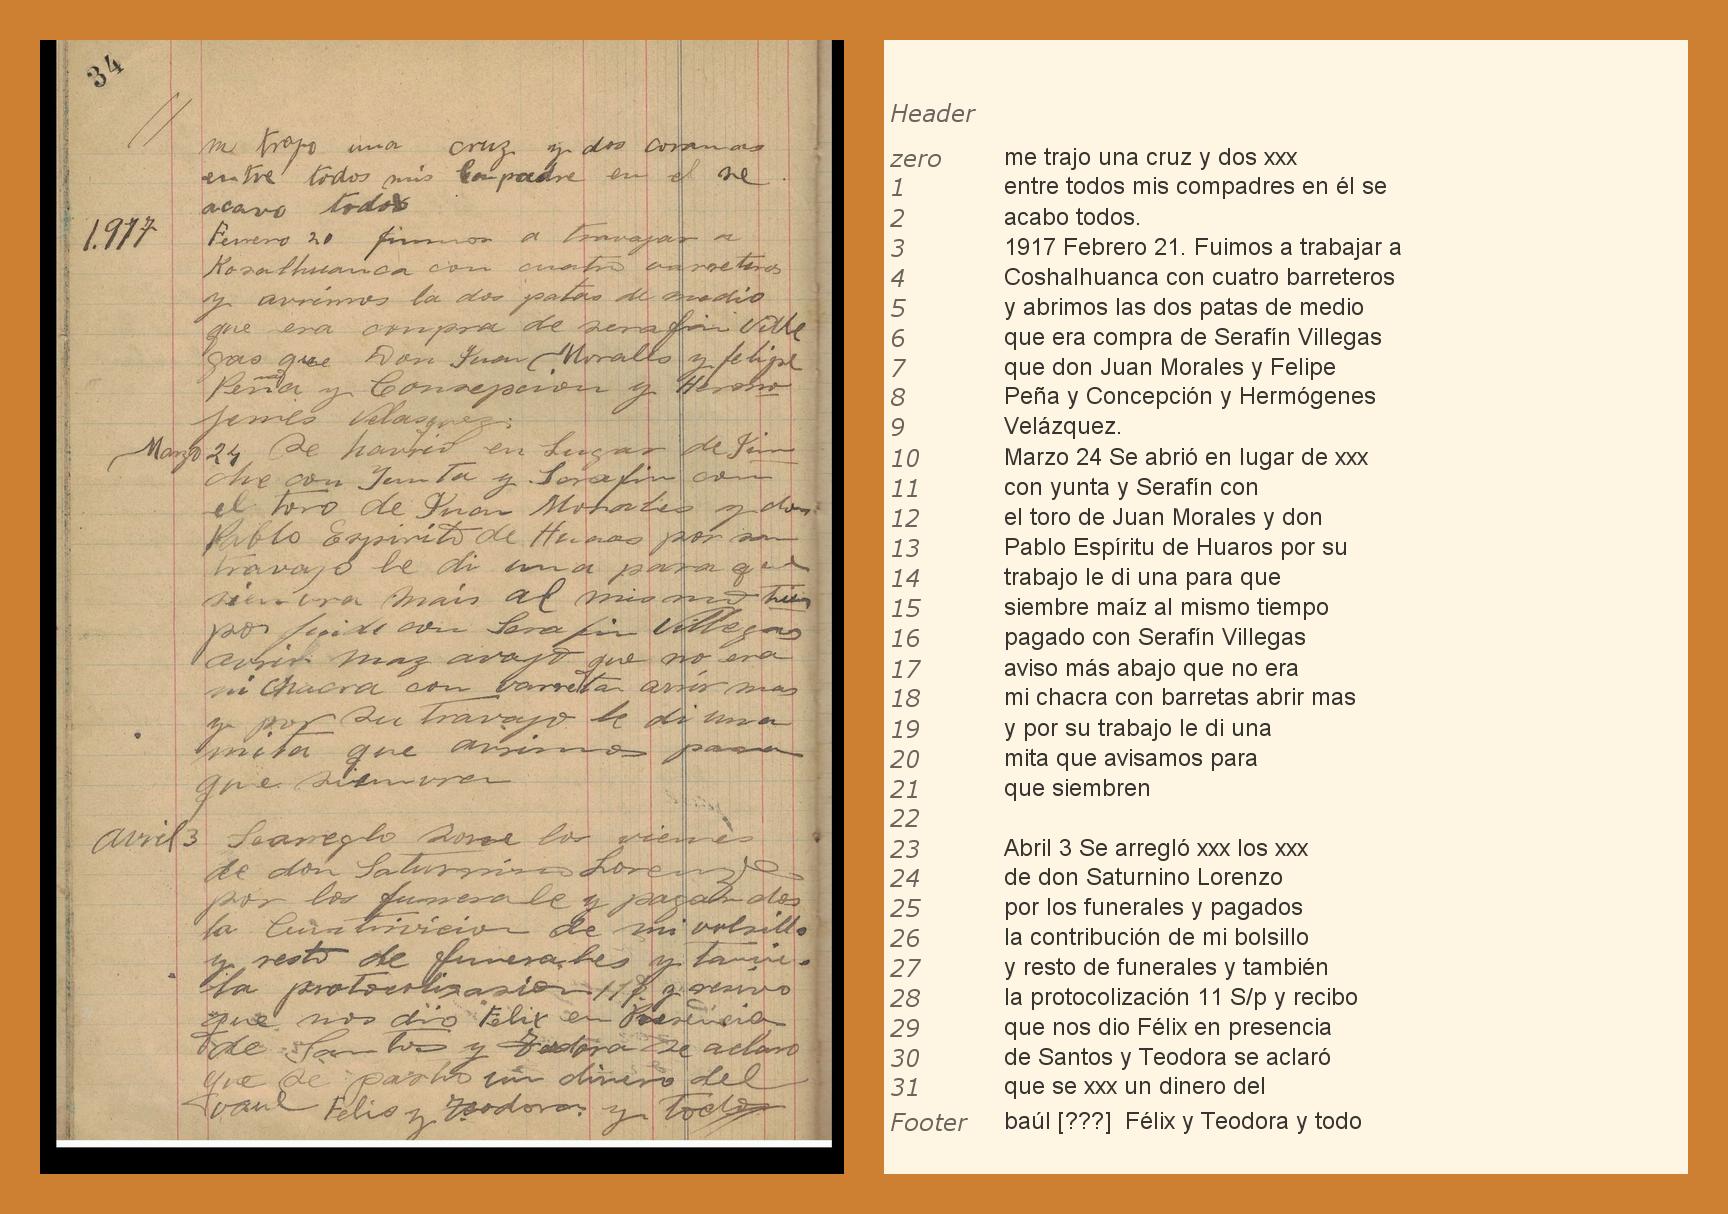 34
me trajo una cruz y dos coronas
entre todos mis compadre en el se
acavo todos
1.917
Ferrero 20 fuimos a travajar a
Kosalhuanca con cuatro varreteros
y avrimos la dos patas de medio
que era compra de serafin Ville
gas que Don Juan Morales y felipe
Peña y Consepcion y Hermo
jenes Velasquez.
Marzo 24 Se havrió en Lugar de
che con Junta y Serafin con
el toro de Juan Morales y don
Pablo Espirito de Huaros por su
travajo le di una para que
siemvra mais al mismo tiem
po con Serafin Villegas
avrir maz avajo que no era
mi chacra con varreta avrir mas
y por su travajo le di una
mita que avrimos para
que siemvren
Avril 3 Searreglo sovre los vienes
de don Saturnino Lorenzo
por los funerale y pagar dos
la Contrivicion de mi volsillo
y resto de funerales y tamvi.
la protocolisasion y resivo
que nos dio Felix en Presencia
de Santos y Teodora se aclaro
que se un dinero del
vaul Felis y Teodora y todo
Header
zero me trajo una cruz y dos xxx
1 entre todos mis compadres en él se
2 acabo todos.
3 1917 Febrero 21. Fuimos a trabajar a
4 Coshalhuanca con cuatro barreteros
5 y abrimos las dos patas de medio
6 que era compra de Serafín Villegas
7 que don Juan Morales y Felipe
8 Peña y Concepción y Hermógenes
9 Velázquez.
10 Marzo 24 Se abrió en lugar de xxx
11 con yunta y Serafín con
12 el toro de Juan Morales y don
13 Pablo Espíritu de Huaros por su
14 trabajo le di una para que
15 siembre maíz al mismo tiempo
16 pagado con Serafín Villegas
17 aviso más abajo que no era
18 mi chacra con barretas abrir mas
19 y por su trabajo le di una
20 mita que avisamos para
21 que siembren
22
23 Abril 3 Se arregló xxx los xxx
24 de don Saturnino Lorenzo
25 por los funerales y pagados
26 la contribución de mi bolsillo
27 y resto de funerales y también
28 la protocolización 11 S/p y recibo
29 que nos dio Félix en presencia
30 de Santos y Teodora se aclaró
31 que se xxx un dinero del
Footer baúl [???] Félix y Teodora y todo